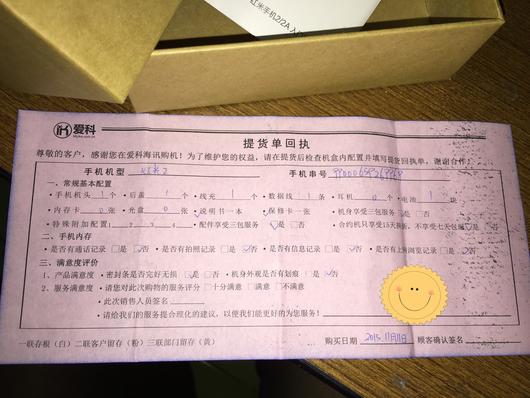 红米手机2/2A 入
爱科
提货单回执
尊敬的客户，感谢您在爱科海讯购机！为了维护您的权益，请在提货后检查机盒内配置并填写提货回执单，谢谢合作！
手机机型 红米2 手机串号
一、常规基本配置
·手机机头 1 个 ·后盖 1 个 ·线充 1 个 ·数据线 1 条 ·耳机 0 个 ·电池 1 块
·内存卡 0 张 ·光盘 0 张 ·说明书一本 ·保修卡一张 ·机身享受三包服务 是 否
·特殊附加配置: 1 2 3 4 ·配件享受三包服务 是 否 ·合约机只享受15天换新，不享受七天包 是 否
二、手机内存
·是否有通话记录 是 否 ·是否有拍照记录 是 否 ·是否有信息记录 是 否 ·是否有上海浏览记录 是 否
三、满意度评价
1、产品满意度 ·密封条是否完好无损 是 否 ·机身外观是否有划痕 是 否
2、服务满意度 ·请您对此次购物的服务评分 十分满意 满意 不满意
·此次销售人员签名
·请给我们的服务提合理化的建议，以便我们能更好的为您服务！
一联存根（白）二联客户留存（粉）三联部门留存（黄） 购买日期 2015.11月11日 顾客确认签名